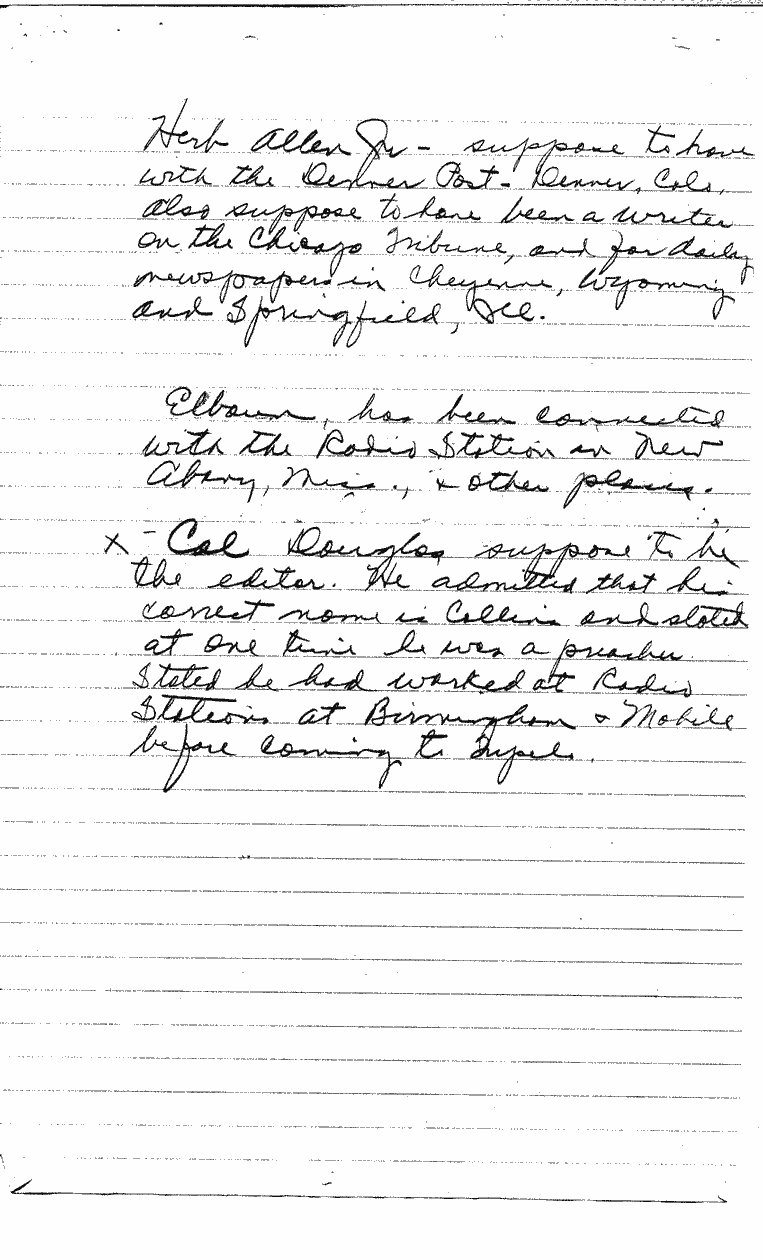 Herb Allen Jr - suppose to have
with the Denver Post - Denver, Colo,
also suppose to have been a writer
on the Chicago Tribune, and for daily
newspapers in Cheyenne, Wyoming
and Springfield, Ill.
has been connected
with the Radio Station in New
Albany, Miss., & other places.
x - Cal Douglas suppose to be
the editor. He admitted that his
correct name is Collins and stated
at one time he was a preacher.
Stated he had worked at Radio
Stations at Birmingham & Mobile
before coming to Tupelo.